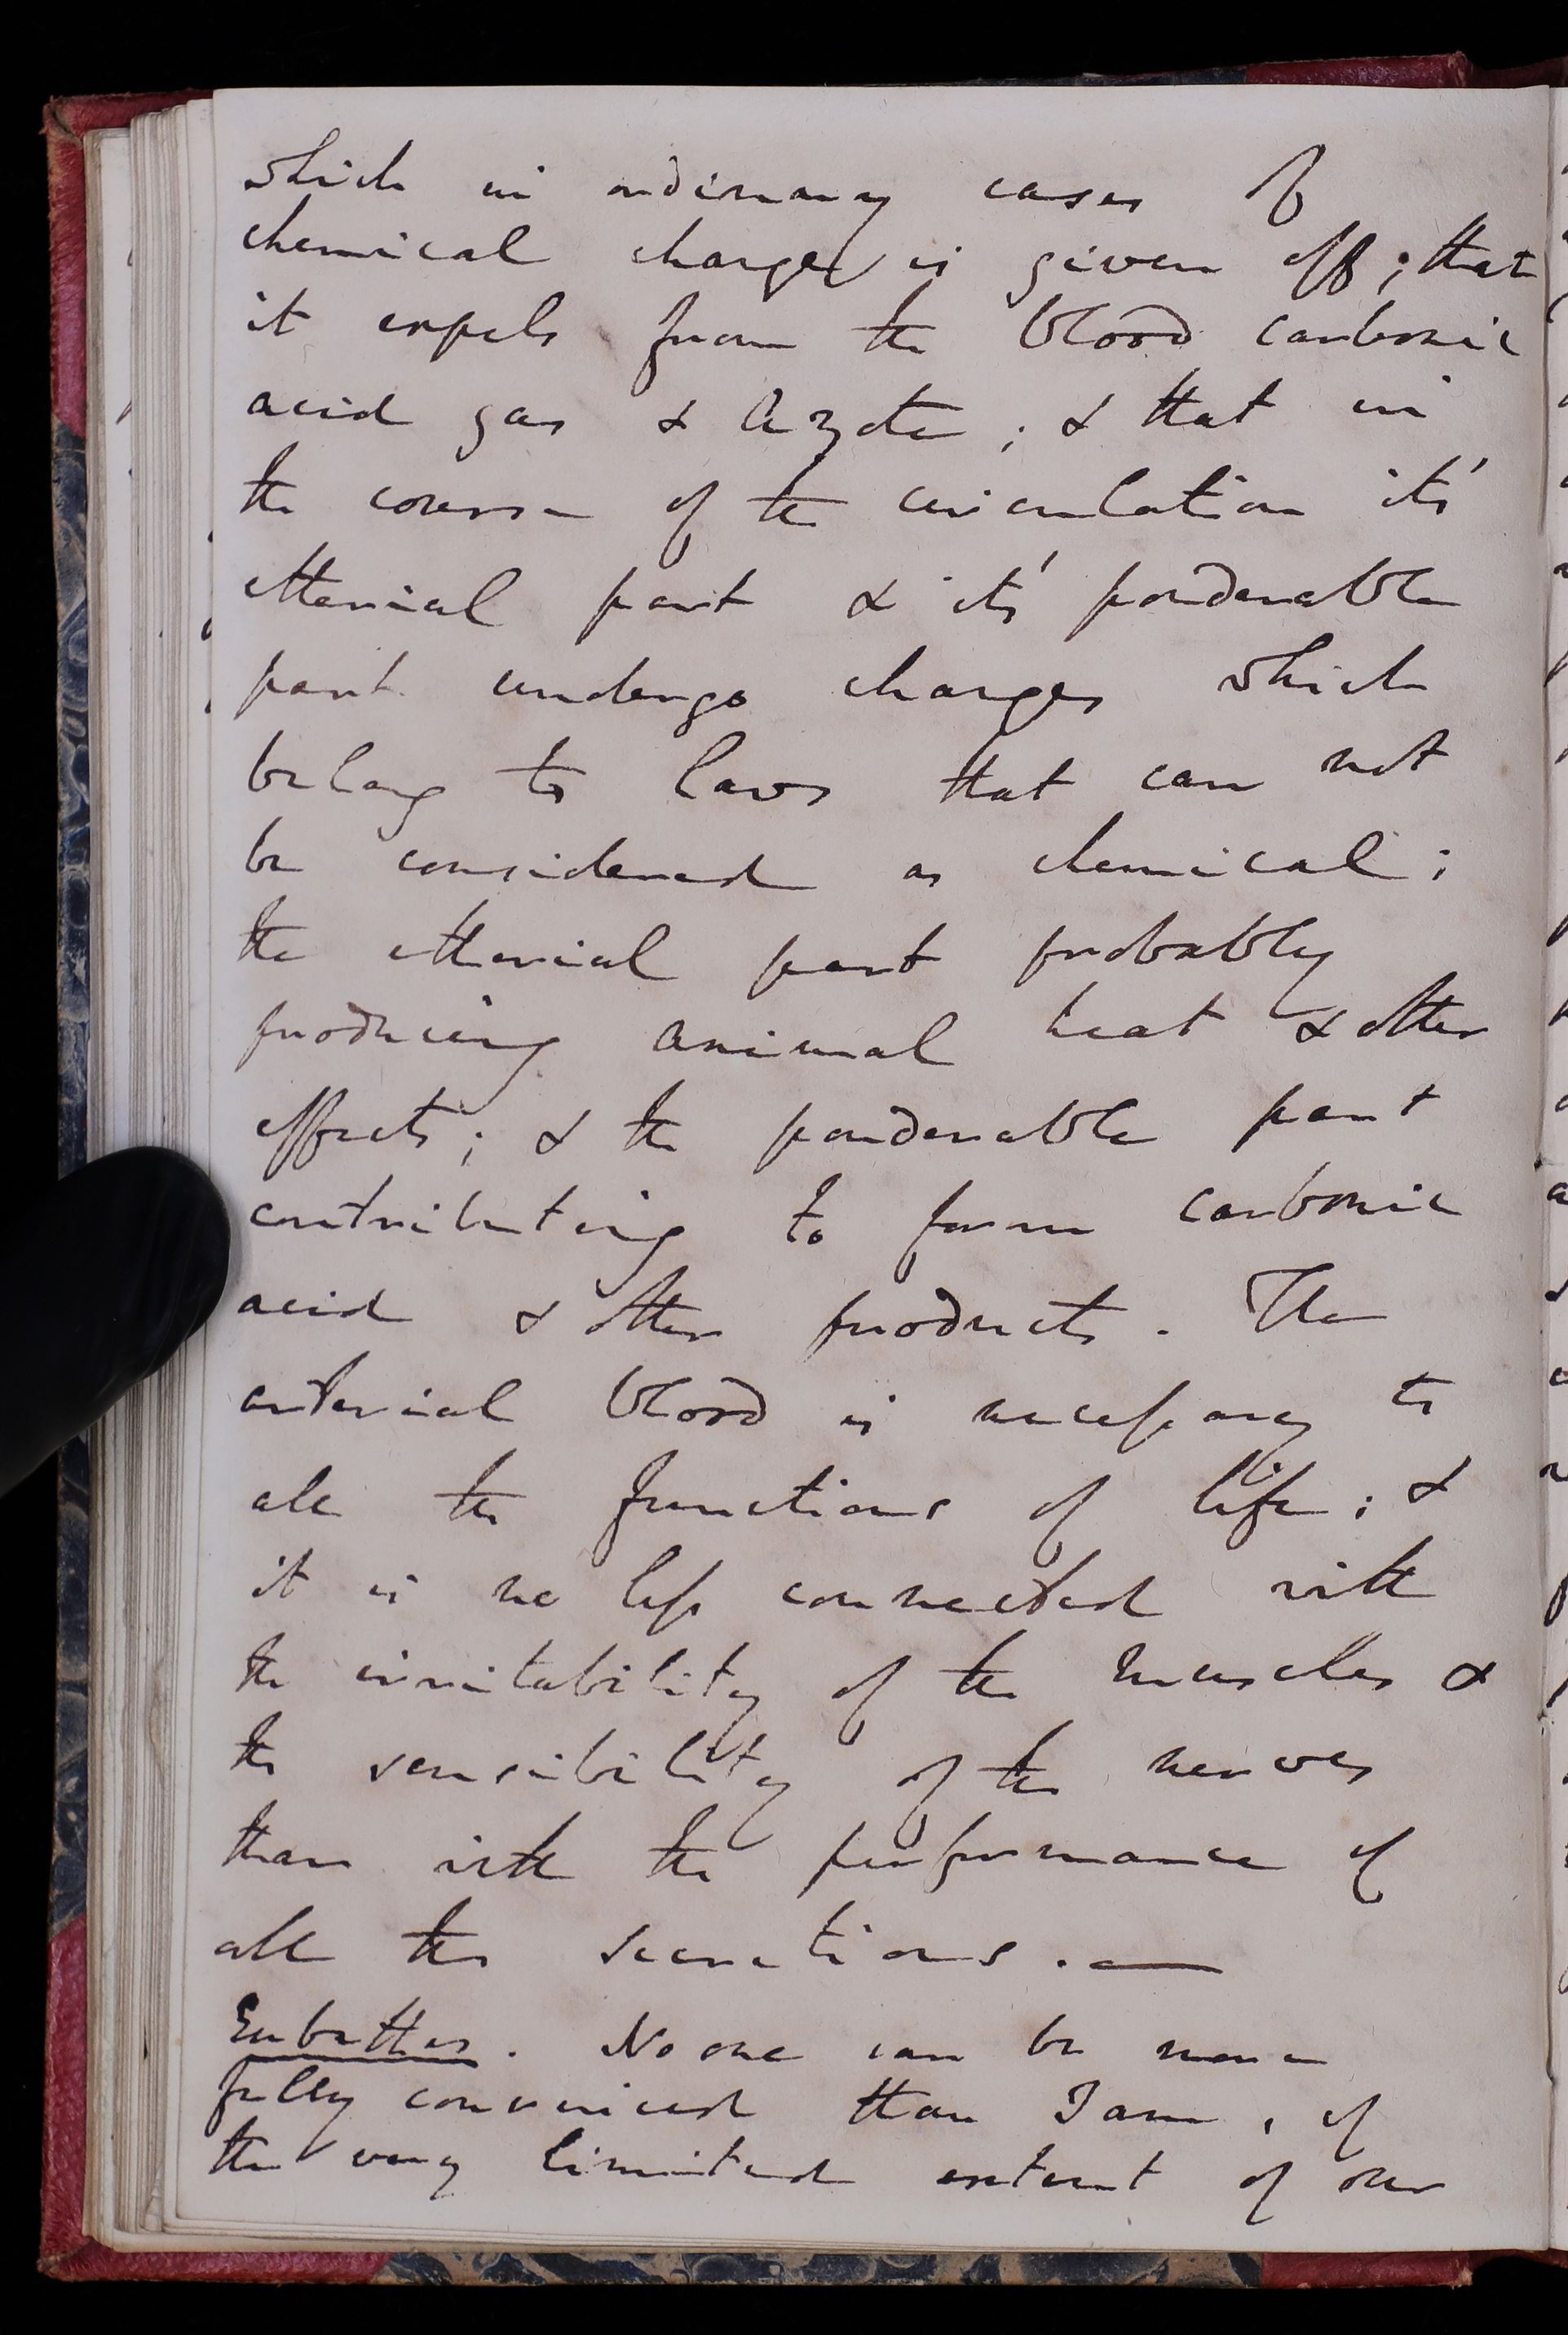 which in ordinary cases of
chemical change is given off; that
it expels from the blood carbonic
acid gas & Azote; & that in
the course of the circulation its'
etherial part & its' ponderable
part undergo changes which
belong to laws that can not
be considered as chemical;
the etherial part probably
producing animal heat & other
effects; & the ponderable part
contributing to form carbonic
acid & other products. The
arterial blood is necessary to
all the functions of life; &
it is no less connected with
the irritability of the muscles &
the sensibility of the nerves
than with the performance of
all the secretions. —
Eubathes. No one can be more
fully convinced than I am, of
the very limited extent of our